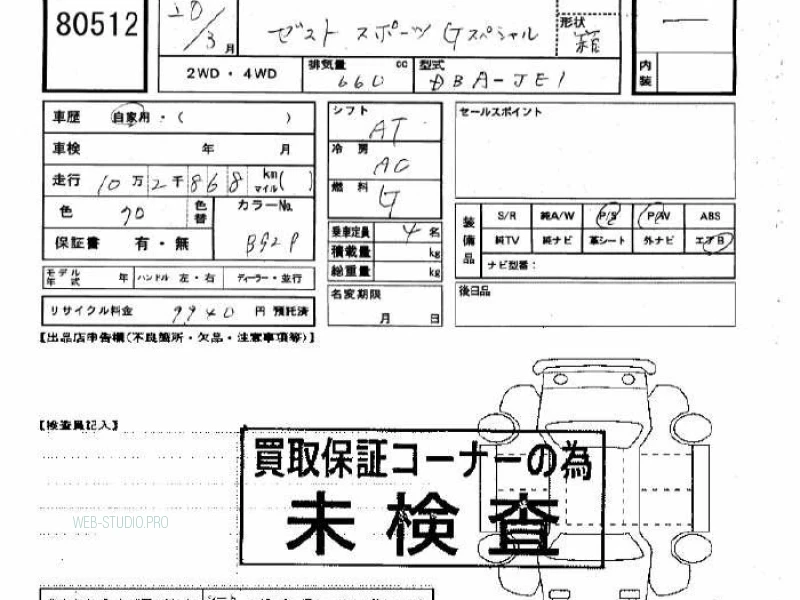 80512
20/3月
ゼスト スポーツ Gスペシャル
形状 箱
2WD・4WD
排気量 660 cc
型式 DBA-JE1
内装
車歴 自家用・( )
車検 年 月
走行 10万2千868 km マイル( )
色 クロ
色替
カラーNo. B92P
保証書 有・無
モデル年式 年
ハンドル 左・右
ディーラー・並行
リサイクル料金 9940 円 預託済
シフト AT
冷房 AC
燃料 G
乗車定員 4名
積載量 kg
総重量 kg
名変期限
月 日
セールスポイント
装備品
S/R 純A/W P/S P/W ABS
純TV 純ナビ 革シート 外ナビ エアB
ナビ型番:
後日品
【出品店申告欄(不良箇所・欠品・注意事項等)】
【検査員記入】
買取保証コーナーの為
未検査
WEB-STUDIO.PRO